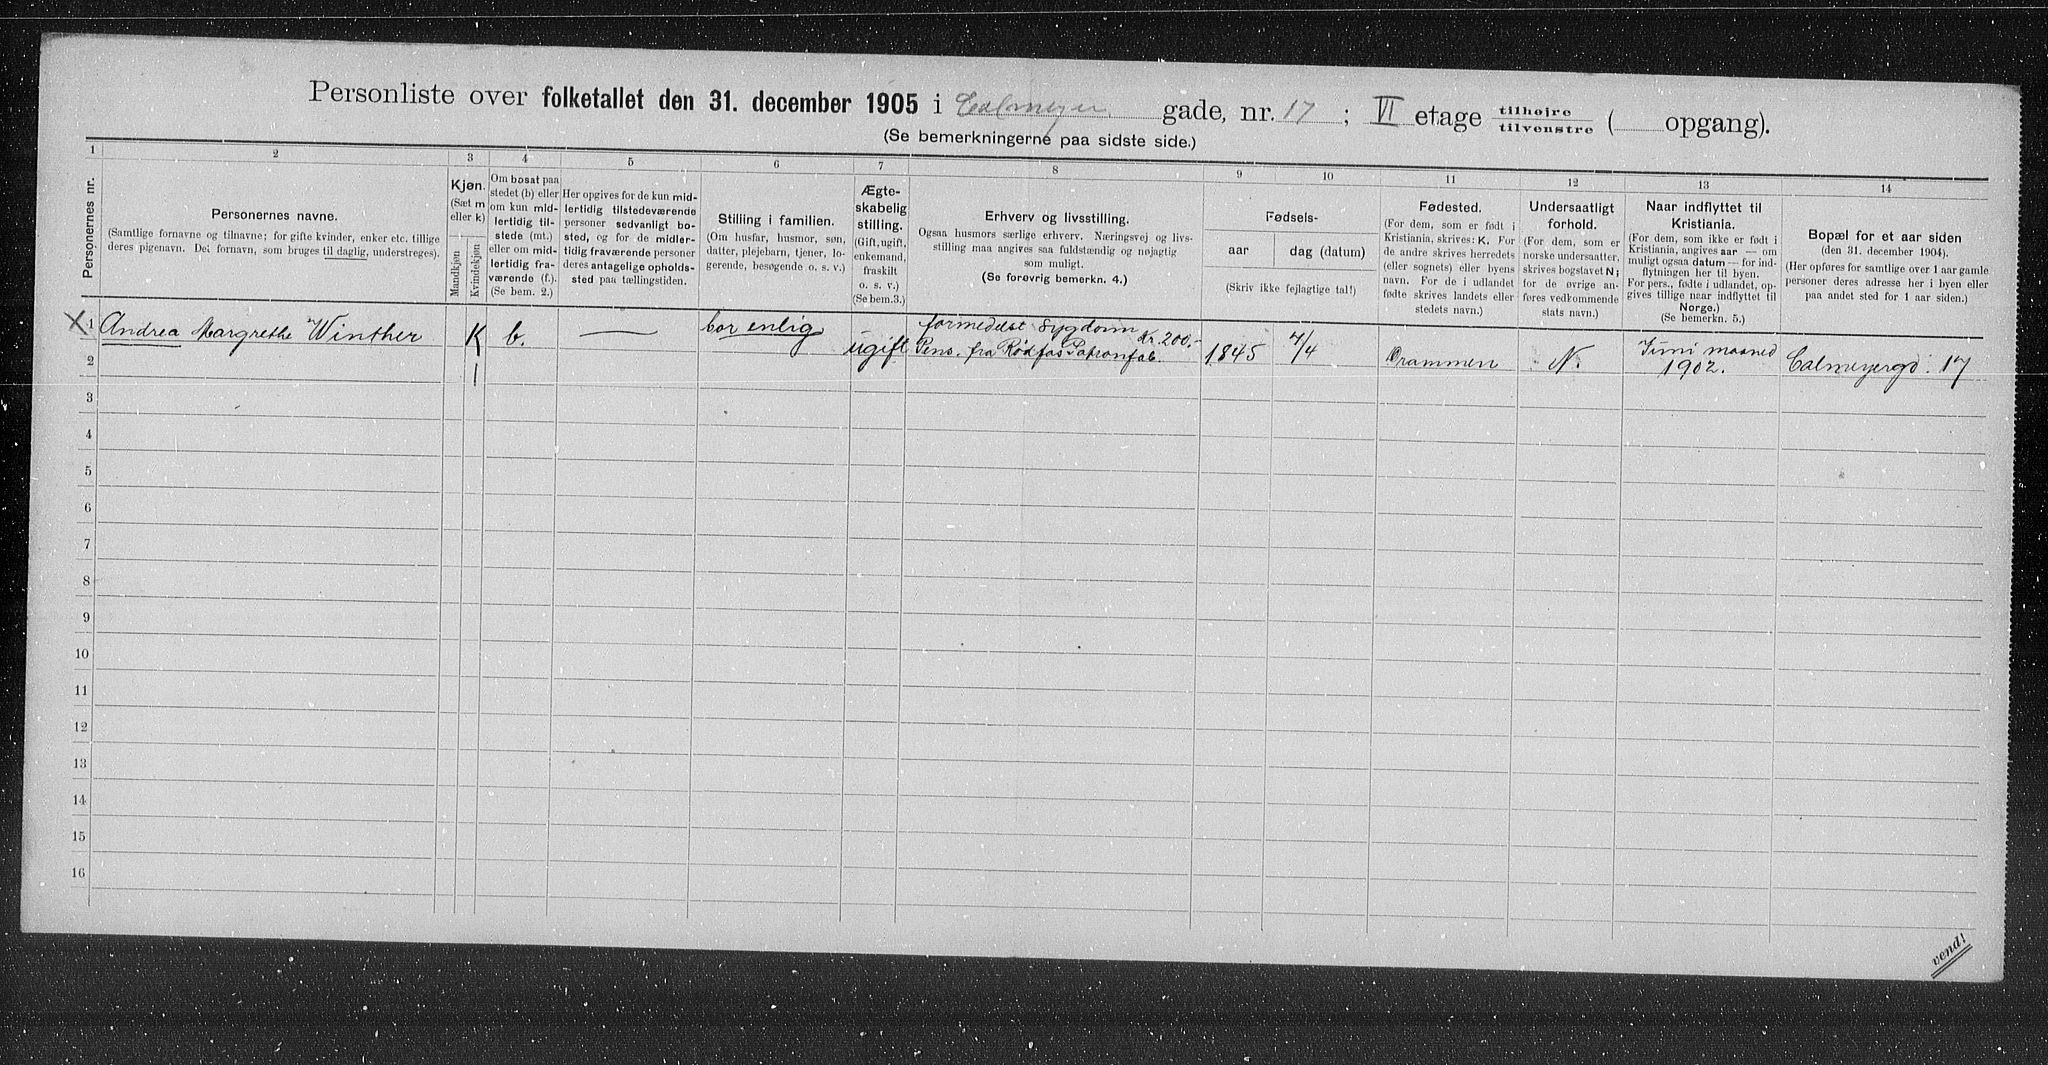 Personliste over folketallet den 31. december 1905 i Calmeyer gade, nr. 17 ; VI etage tilhøire tilvenstre ( opgang).
(Se bemerkningerne paa sidste side.)
1 2 3 4 5 6 7 8 9 10 11 12 13 14
Personernes nr.
Personernes navne.
(Samtlige fornavne og tilnavne; for gifte kvinder, enker etc. tillige
deres pigenavn. Det fornavn, som bruges til daglig, understreges).
Kjøn.
(Sæt m
eller k)
Mandkjøn
Kvindekjøn
Om bosat paa
stedet (b) eller
om kun mid-
lertidig til-
stede (mt.)
eller om mid-
lertidig fra-
værende (f.).
(Se bem. 2.)
Her opgives for de kun mid-
lertidig tilstedeværende
personer sedvanligt bo-
sted, og for de midler-
tidig fraværende personer
deres antagelige opholds-
sted paa tællingstiden.
Stilling i familien.
(Om husfar, husmor, søn,
datter, plejebarn, tjener, lo-
gerende, besøgende o. s. v.)
Ægte-
skabelig
stilling.
(Gift, ugift,
enkemand,
fraskilt
o. s. v.)
(Se bem.3.)
Erhverv og livsstilling.
Ogsaa husmors særlige erhverv. Næringsvej og livs-
stilling maa angives saa fuldstændig og nøjagtig
som muligt.
(Se forøvrig bemerkn. 4.)
Fødsels-
aar
dag (datum)
(Skriv ikke fejlagtige tal!)
Fødested.
(For dem, som er født i
Kristiania, skrives: K. For
de andre skrives herredets
(eller sognets) eller byens
navn. For de i udlandet
fødte skrives landets eller
stedets navn.)
Undersaatligt
forhold.
(For dem, som er
norske undersaatter,
skrives bogstavet N;
for de øvrige an-
føres vedkommende
stats navn.)
Naar indflyttet til
Kristiania.
(For dem, som ikke er født i
Kristiania, angives aar — om
muligt ogsaa datum — for ind-
flytningen her til byen.
For pers., fødte i udlandet, op-
gives tillige naar indflyttet til
Norge.)
(Se bemerkn. 5.)
Bopæl for et aar siden
(den 31. december 1904).
(Her opføres for samtlige over 1 aar gamle
personer deres adresse her i byen eller
paa andet sted for 1 aar siden.)
X 1 Andrea Margrethe Winther K b. — bor enlig ugift formedelst Sygdom Kr. 200.-
Pens. fra Rødfos Patronfab. 1845 7/4 Drammen N. Juni maaned
1902. Calmeyergd. 17
2
3
4
5
6
7
8
9
10
11
12
13
14
15
16
vend!